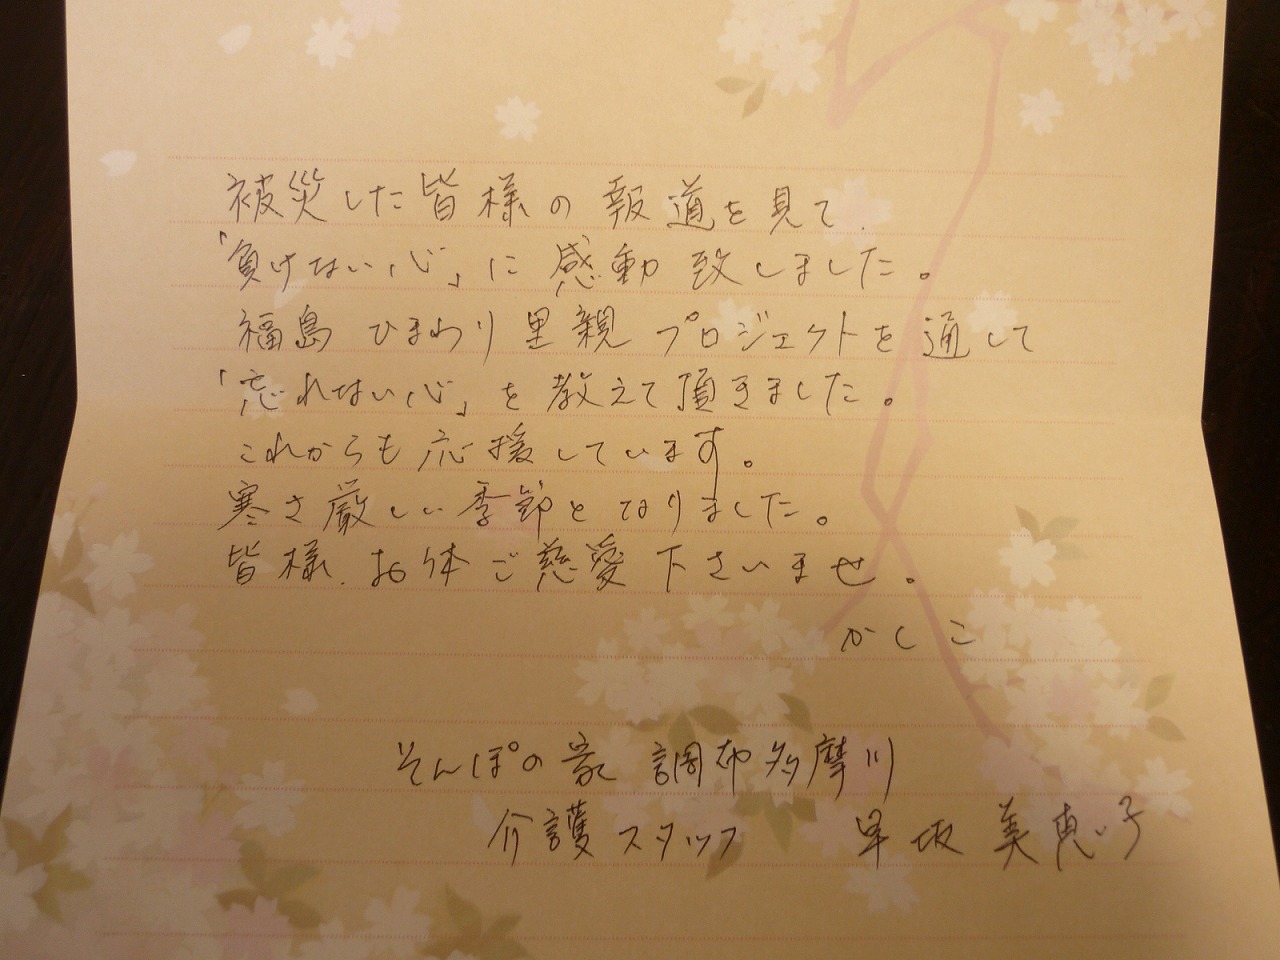 被災した皆様の報道を見て、
「負けない心」に感動致しました。
福島ひまわり里親プロジェクトを通して
「忘れない心」を教えて頂きました。
これからも応援しています。
寒さ厳しい季節となりました。
皆様、お体ご慈愛下さいませ。
かしこ
そんぽの家 調布多摩川
介護スタッフ 早坂 美恵子